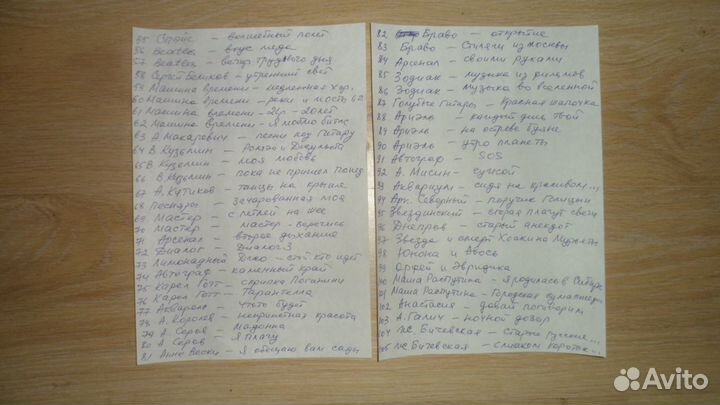 55 Спейс - волшебный полёт
56 Beatles - вкус меда
57 Beatles - вечер трудного дня
58 Сергей Беликов - утренний свет
59 Машина времени - медленная хор.
60 Машина времени - реки и мосты 62
61 Машина времени - 2гр - 20 лет
62 Машина времени - Я люблю битлс
63 А. Макаревич - песни под гитару
64 В. Кузьмин - Ромео и Джульета
65 В. Кузьмин - моя любовь
66 В. Кузьмин - пока не пришел понед
67 А. Кутиков - танцы на крыше
68 Песняры - зачарованная моя
69 Мастер - с петлей на шее
70 Мастер - мастер
71 Арсенал - второе дыхание
72 Диалог - Диалог 3
73 Лимонадный Джо - стой кто идёт
74 Автограф - каменный край
75 Карел Готт - скрипка Погонини
76 Карел Готт - Тарантелла
77 Акварели - что то будет
78 А. Королев - неприметная красота
79 А. Серов - Мадонна
80 А. Серов - Я плачу
81 Анне Вески - Я обещаю вам сады
82 Браво - открытие
83 Браво - Стиляги из Москвы
84 Арсенал - своими руками
85 Зодиак - музыка из фильмов
86 Зодиак - музыка во вселенной
87 Голубые гитары - Красная шапочка
88 Ариэль - каждый день твой
89 Ариэль - на острове буяне
90 Ариэль - утро планеты
91 Автограф - SOS
92 А. Мисин - чужой
93 Аквариум - сидя на красивом...
94 Арк. Северный - поручик Голицын
95 Звездинский - сгорая плачут свечи
96 Днепров - старый анекдот
97 Звезда и смерть Хоакина Мурьеты
98 Юнона и Авось
99 Орфей и Эвридика
100 Маша Распутина - Я родилась в Сибири
101 Маша Распутина - Городская сумасшедшая
102 Анастасия - давай поговорим
103 А. Галич - ночной дозор
104 Ж. Бичевская - Старые русские...
105 Ж. Бичевская - слишком коротк...
Avito